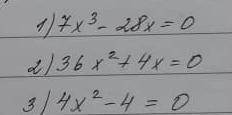 1) 7x³ - 28x = 0
2) 36x² + 4x = 0
3) 4x² - 4 = 0